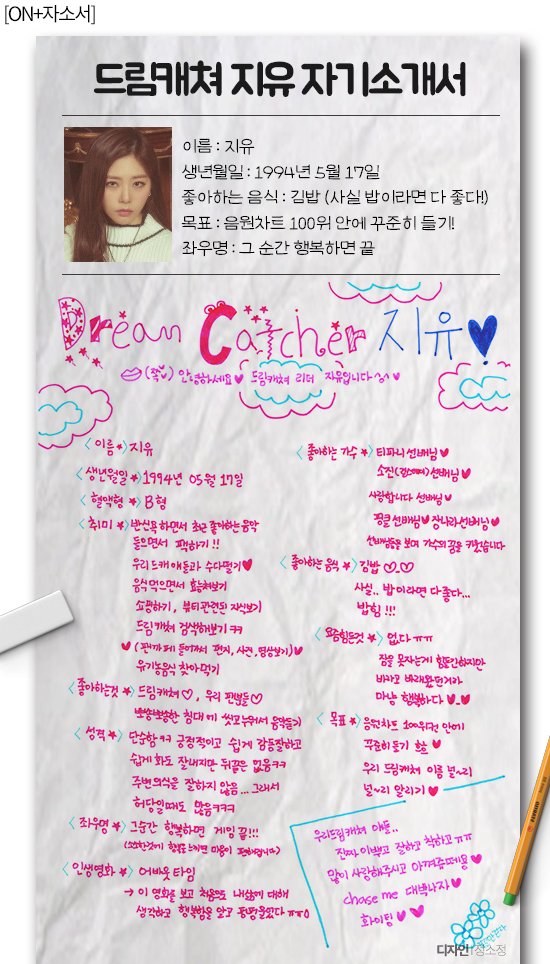 [ON+자소서]
드림캐쳐 지유 자기소개서
이름 : 지유
생년월일 : 1994년 5월 17일
좋아하는 음식 : 김밥 (사실 밥이라면 다 좋다!)
목표 : 음원차트 100위 안에 꾸준히 들기!
좌우명 : 그 순간 행복하면 끝
Dream Catcher 지유♥
(쪽♥) 안녕하세요♥ 드림캐쳐 리더 지유입니다^^ ♥
<이름★> 지유
<생년월일★> 1994년 05월 17일
<혈액형★> B형
<취미★> 반신욕하면서 최근 좋아하는 음악
들으면서 팩하기!!
우리 드캐 애들과 수다떨기♥
음식먹으면서 보기
쇼핑하기, 뷰티관련된 자신보기
드림캐쳐 검색해보기 ㅋㅋ
♥(팬카페 들어가서 편지, 사진, 영상보기)♥
유기농음식 찾아먹기
<좋아하는것★> 드림캐쳐♡, 우리 팬분들♡
뽀송뽀송한 침대에 씻고누워서 음악듣기
<성격★> 단순함ㅋㅋ 긍정적이고 쉽게 감동잘하고
쉽게 화도 잘내지만 뒤끝은 없음ㅋㅋ
주변의식을 잘하지 않음...그래서
허당일때도 많음ㅋㅋㅋ
<좌우명★> 그순간 행복하면 게임 끝!!!
(소소한것에 행복느끼면 마음이 편해집니다)
<인생영화★> 어바웃타임
→ 이 영화를 보고 처음으로 내삶에 대해
생각하고 행복함을 알고 펑펑울었다 ㅠㅠ
<좋아하는 가수★> 티파니 선배님♥
소진(걸스데이)선배님♥
사랑합니다 선배님♥
핑클선배님♥ 장나라선배님♥
선배님들을 보며 가수의 꿈을 키웠습니다
<좋아하는 음식★> 김밥 ♡.♡
사실.. 밥이라면 다좋다...
밥힘!!!
<요즘힘든것★> 없다ㅠㅠ
잠을 못자는게 힘들긴하지만
바라고 바래왔던거라
마냥 행복하다♥.♥
<목표★> 음원차트 100위권 안에
꾸준히듣기 흐흐 ♥
우리 드림캐쳐 이름 널~리
널~리 알리기♥
우리드림캐쳐 애들..
진짜 이쁘고 잘하고 착하고ㅠㅠ
많이 사랑해주시고 아껴줍떼용♥
chase me 대박나자♥
화이팅♥♥
디자인 | 장소정